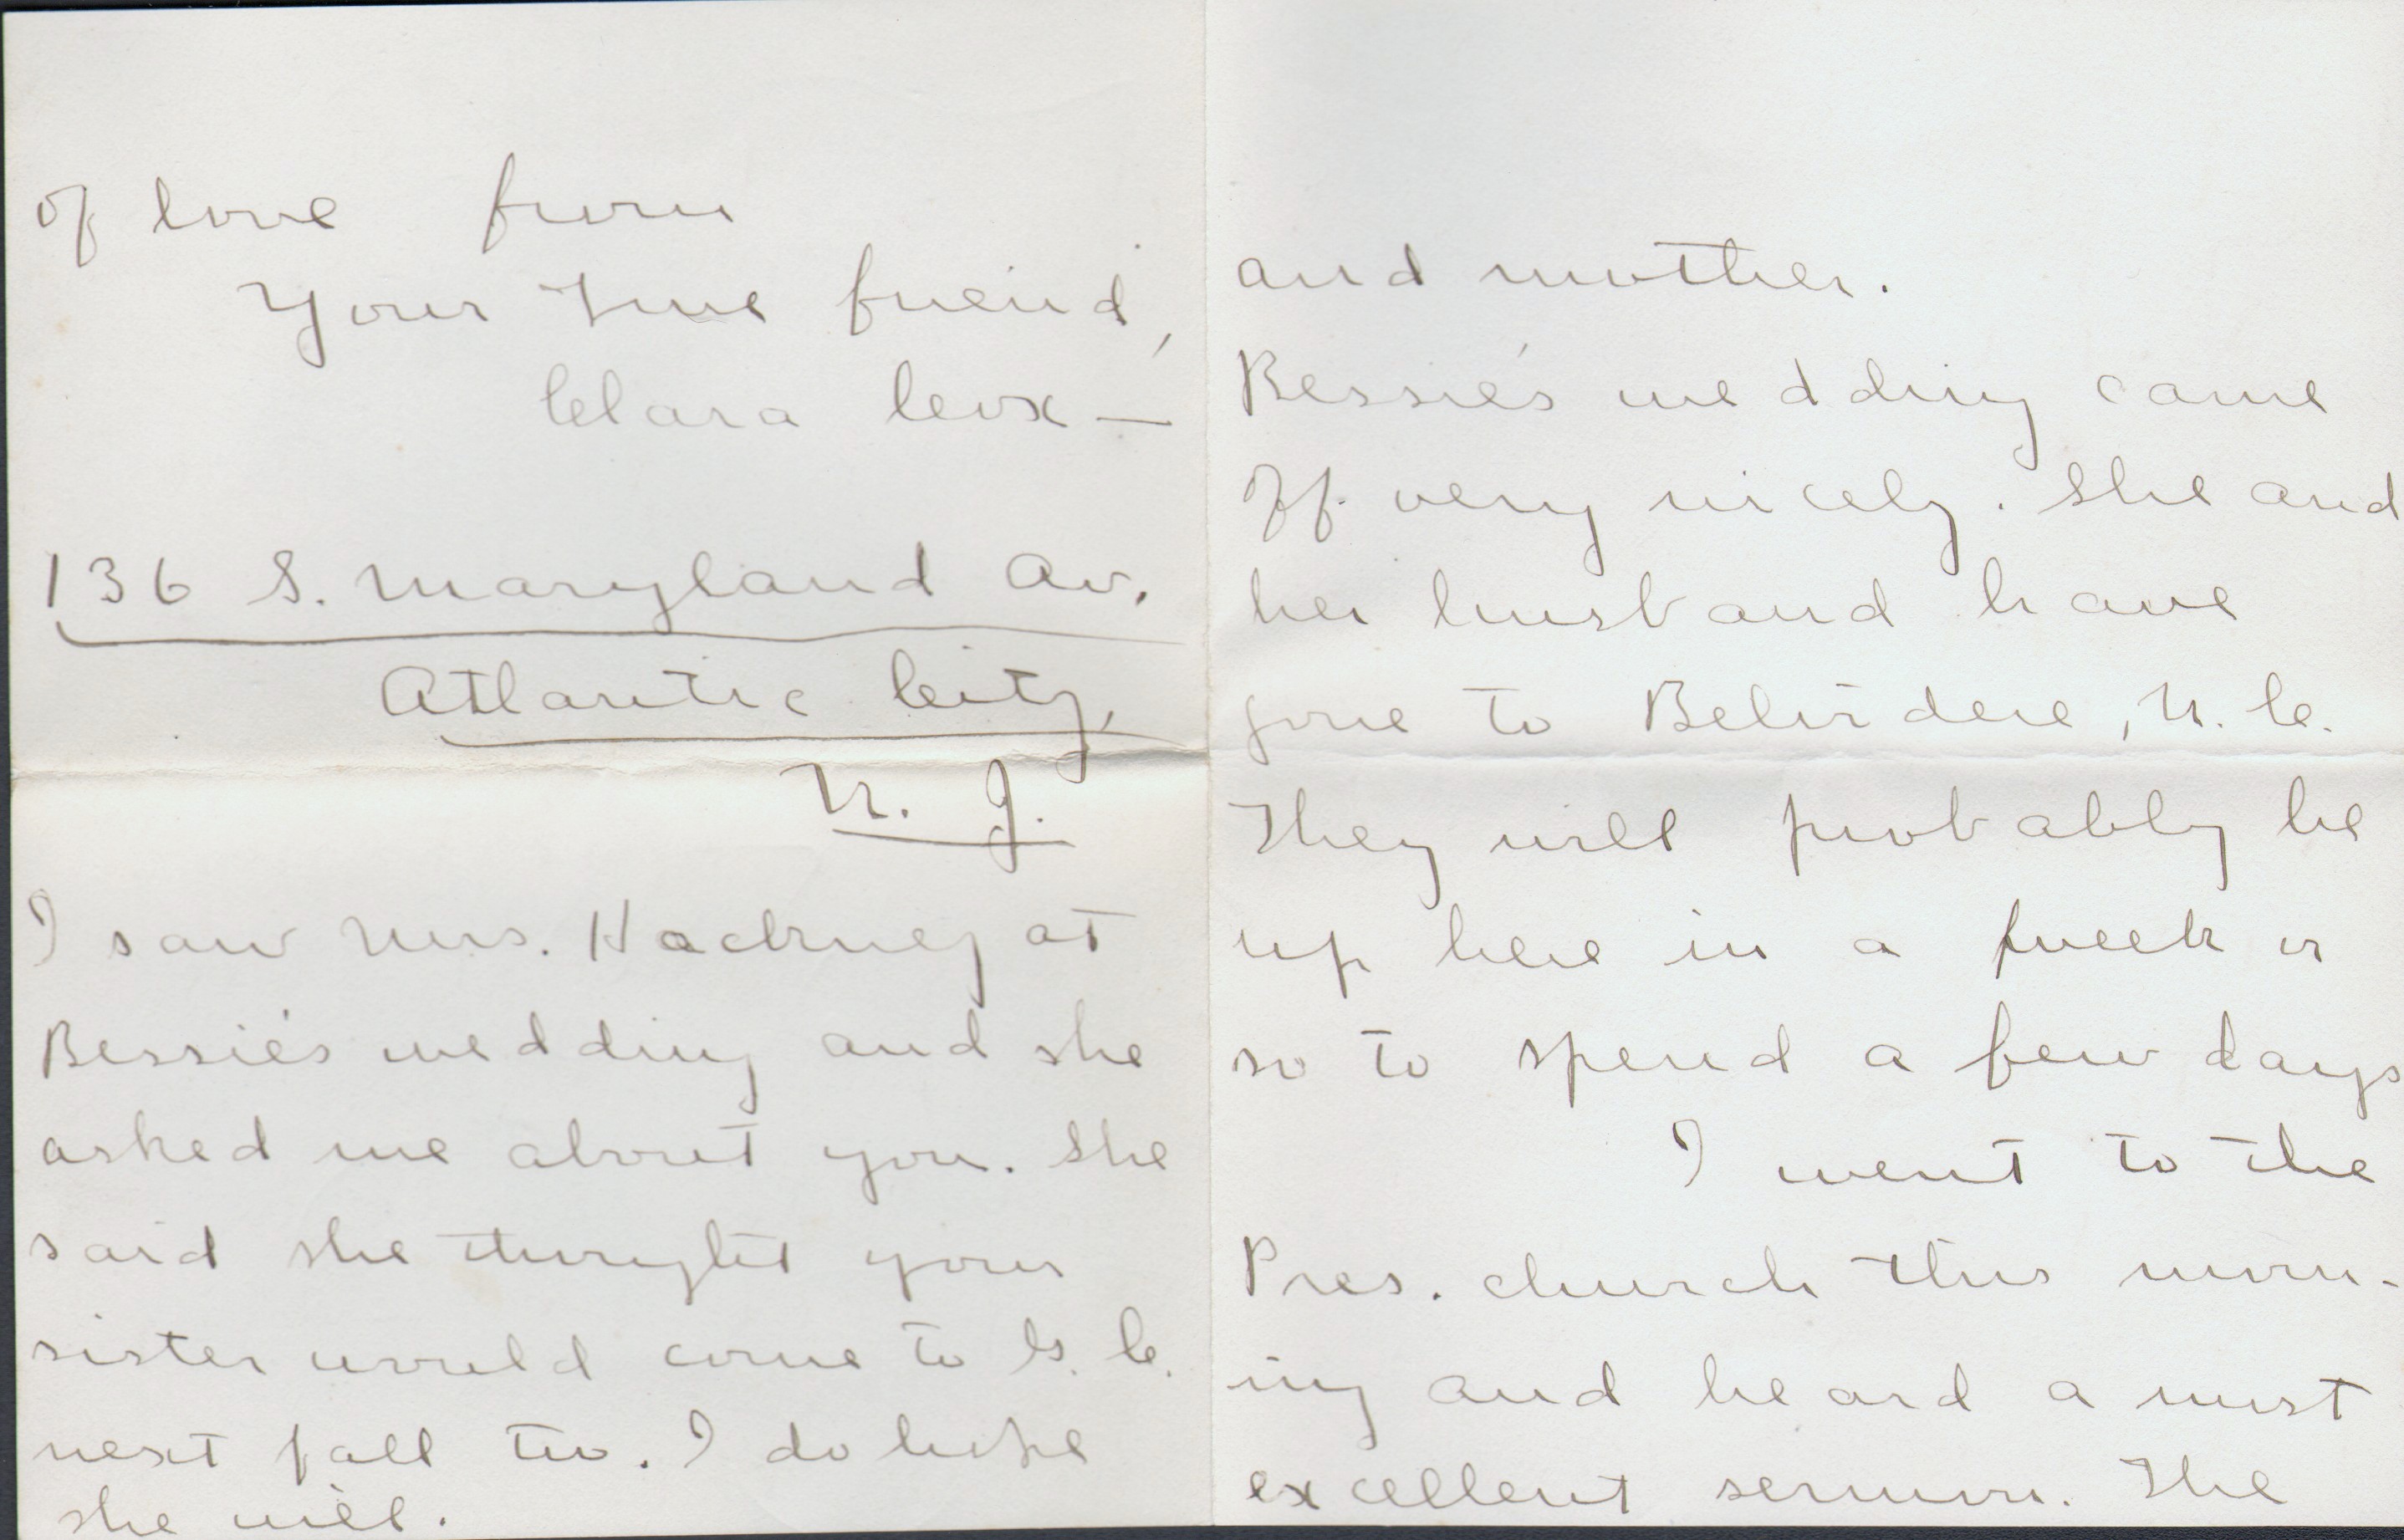 of love from
Your true friend,
Clara Cox —
136 S. Maryland Av.
Atlantic City,
N. J.
I saw Mrs. Hackney at
Bessie's wedding and she
asked me about you. She
said she thought your
sister would come to G. C.
next fall too. I do hope
she will.
and mother.
Bessie's wedding came
off very nicely. She and
her husband have
gone to Belvidere, N. C.
They will probably be
up here in a week or
so to spend a few days
I went to the
Pres. church this morn-
ing and heard a most
excellent sermon. The